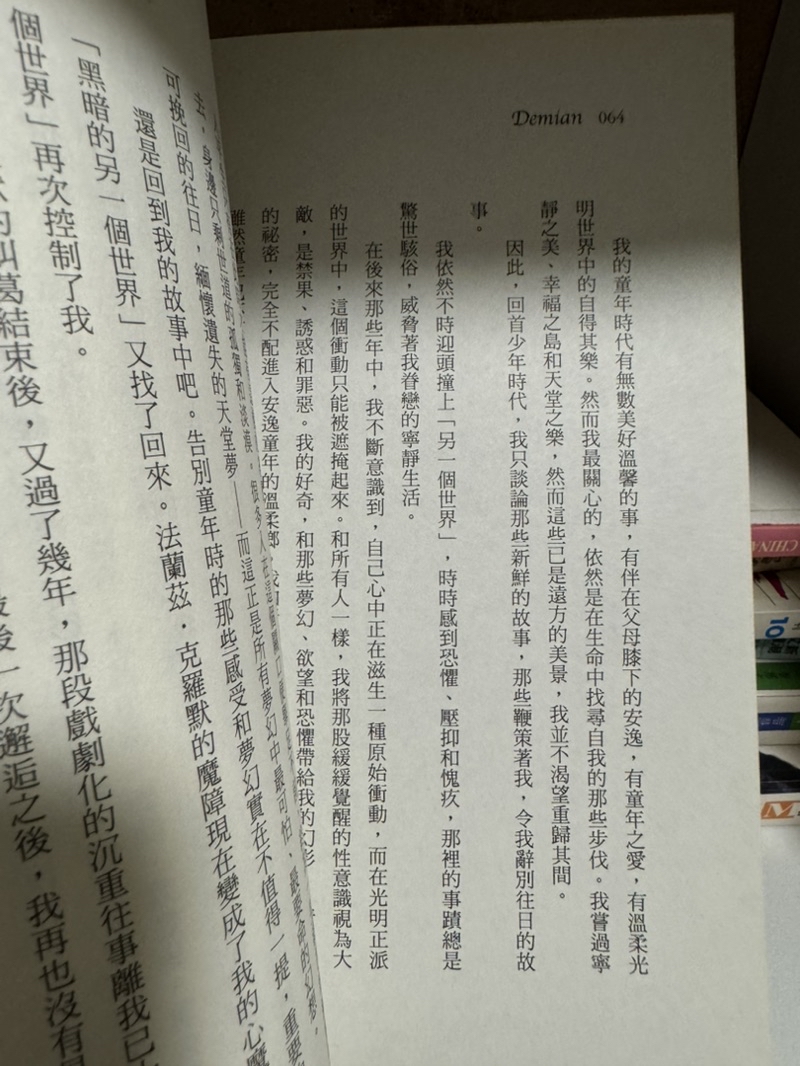 Demian 064
我的童年時代有無數美好溫馨的事，有伴在父母膝下的安逸，有童年之愛，有溫柔光
明世界中的自得其樂。然而我最關心的，依然是在生命中找尋自我的那些步伐。我嘗過寧
靜之美、幸福之島和天堂之樂，然而這些已是遠方的美景，我並不渴望重歸其間。
因此，回首少年時代，我只談論那些新鮮的故事，那些鞭策著我，令我辭別往日的故
事。
我依然不時迎頭撞上「另一個世界」，時時感到恐懼、壓抑和愧疚，那裡的事蹟總是
驚世駭俗，威脅著我眷戀的寧靜生活。
在後來那些年中，我不斷意識到，自己心中正在滋生一種原始衝動，而在光明正派
的世界中，這個衝動只能被遮掩起來。和所有人一樣，我將那股緩緩覺醒的性意識視為大
敵，是禁果、誘惑和罪惡。我的好奇，和那些夢幻、欲望和恐懼帶給我的幻影
的祕密，完全不配進入安逸童年的溫柔鄉
雖然童年
去，身邊只剩世道的孤獨和淡漠。很多人
可挽回的往日，緬懷遺失的天堂夢——而這正是所有夢幻中最可怕、最要命的幻想。
還是回到我的故事中吧。告別童年時的那些感受和夢幻實在不值得一提，重要
「黑暗的另一個世界」又找了回來。法蘭茲．克羅默的魔障現在變成了我的心魔
個世界」再次控制了我。
葛結束後，又過了幾年，那段戲劇化的沉重往事離我已
後一次邂逅之後，我再也沒有
CHINA
10